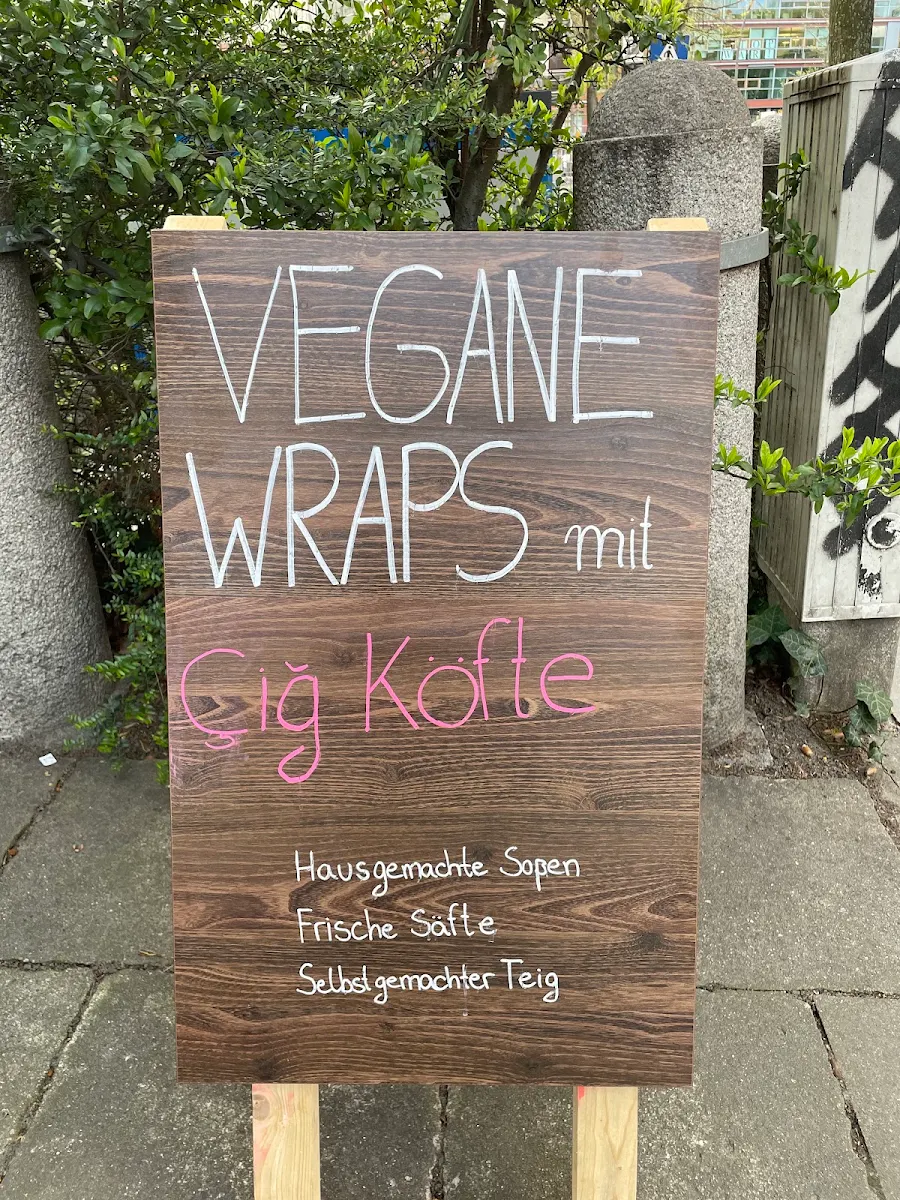 VEGANE
WRAPS mit
Çiğ Köfte
Hausgemachte Soßen
Frische Säfte
Selbstgemachter Teig